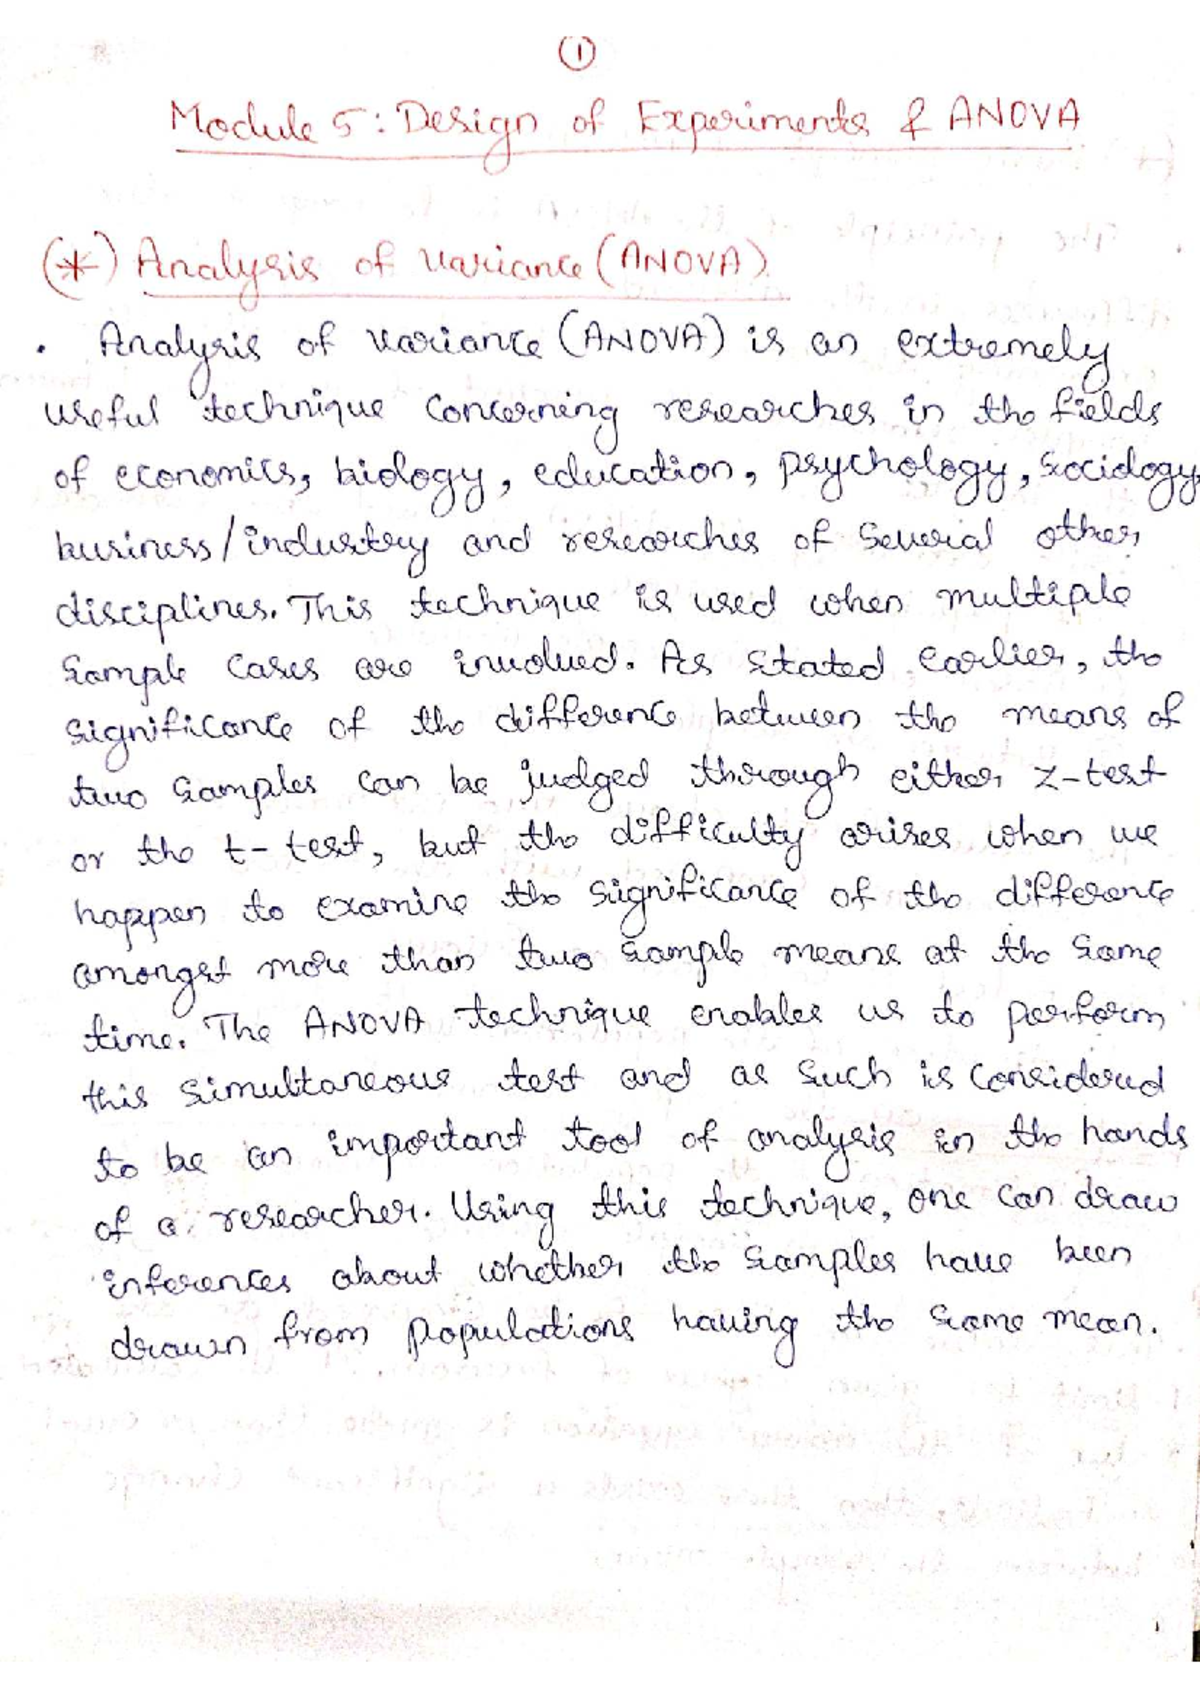 1
Module 5: Design of Experiments & ANOVA
(*) Analysis of variance (ANOVA)
. Analysis of variance (ANOVA) is an extremely
useful technique concerning researches in the fields
of economics, biology, education, psychology, sociology,
business/industry and researches of several other
disciplines. This technique is used when multiple
sample cases are involved. As stated earlier, the
significance of the difference between the means of
two samples can be judged through either z-test
or the t-test, but the difficulty arises when we
happen to examine the significance of the difference
amongst more than two sample means at the same
time. The ANOVA technique enables us to perform
this simultaneous test and as such is considered
to be an important tool of analysis in the hands
of a researcher. Using this technique, one can draw
inferences about whether the samples have been
drawn from populations having the same mean.